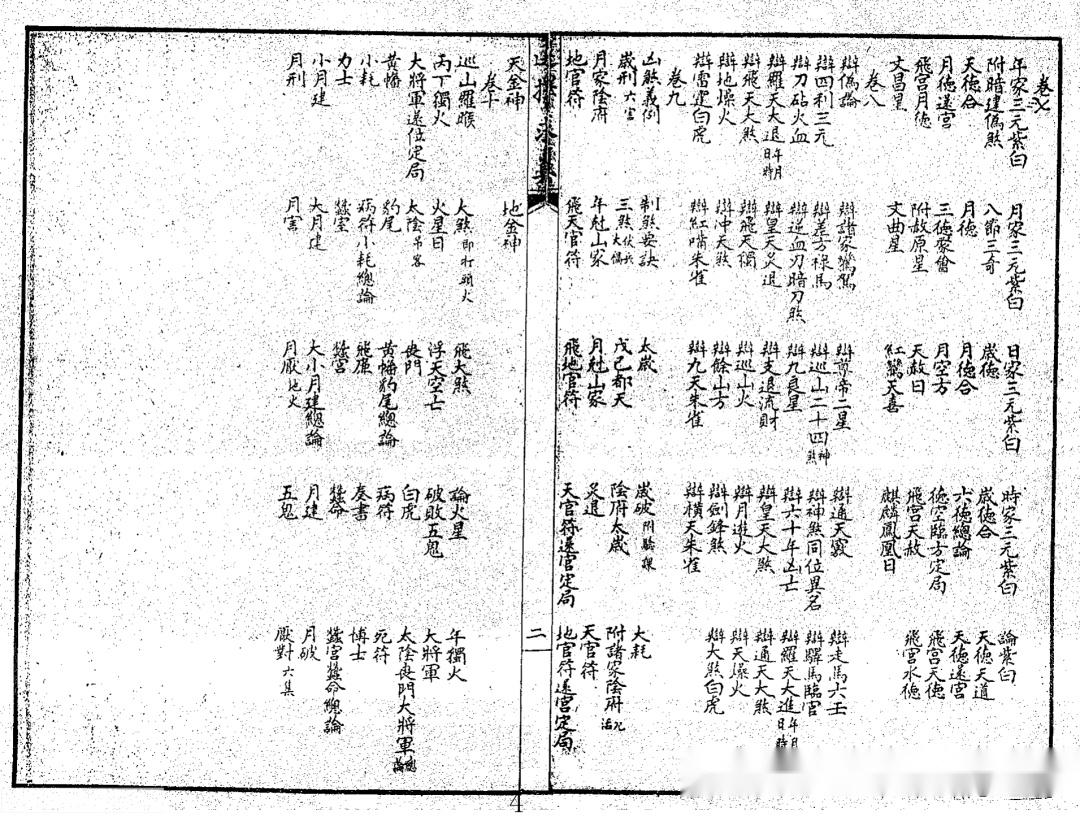 卷七
年家三元紫白 月家三元紫白 日家三元紫白 時家三元紫白 論紫白
附暗建偽煞 八節三奇 歲德 歲德合 天德天道
天德合 月德 月德合 六德總論 天德還宮
月德還宮 三德聚會 月空方 德空臨方定局 飛宮天德
飛宮月德 附赦原星 天赦日 飛宮天赦 飛宮水德
文昌星 文曲星 紅鸞天喜 麒麟鳳凰日
卷八
辯偽論 辯諸家鸞駕 辯尊帝二星 辯通天竅 辯走馬六壬
辯四利三元 辯差方祿馬 辯巡山二十四神煞 辯神煞同位異名 辯驛馬臨官
辯刀砧火血 辯逆血刃暗刀煞 辯九良星 辯六十年凶亡 辯羅天大進年月日時
辯羅天大退年月日時 辯皇天炙退 辯支退流財 辯皇天大煞 辯通天大煞
辯飛天大煞 辯飛天獨 辯巡山火 辯月遊火 辯天爆火
辯地燥火 辯冲天煞 辯餘山方 辯劍鋒煞 辯大煞白虎
辯雷定白虎 辯紅嘴朱雀 辯九天朱雀 辯橫天朱雀
卷九
凶煞義例 制煞要訣 太歲 歲破 大耗
歲刑六害 三煞伏兵大禍 戊己都天 陰府太歲 附諸家陰府
月家陰府 年尅山家 月尅山家 炙退 天官符
地官符 飛天官符 飛地官符 天官符還宮定局 地官符還宮定局
二
天金神 地金神
卷十
巡山羅睺 大煞即打頭火 飛大煞 論火星 年獨火
丙丁獨火 火星日 浮天空亡 破敗五鬼 大將軍
大將軍還位定局 太陰吊客 喪門 白虎 太陰喪門大將軍總論
黃幡 豹尾 黃幡豹尾總論 病符 死符
小耗 病符小耗總論 飛廉 奏書 博士
力士 蠶室 蠶宮 蠶命 蠶宮蠶命總論
小月建 大月建 大小月建總論 月建 月破
月刑 月害 月厭地火 五鬼 厭對六集
4